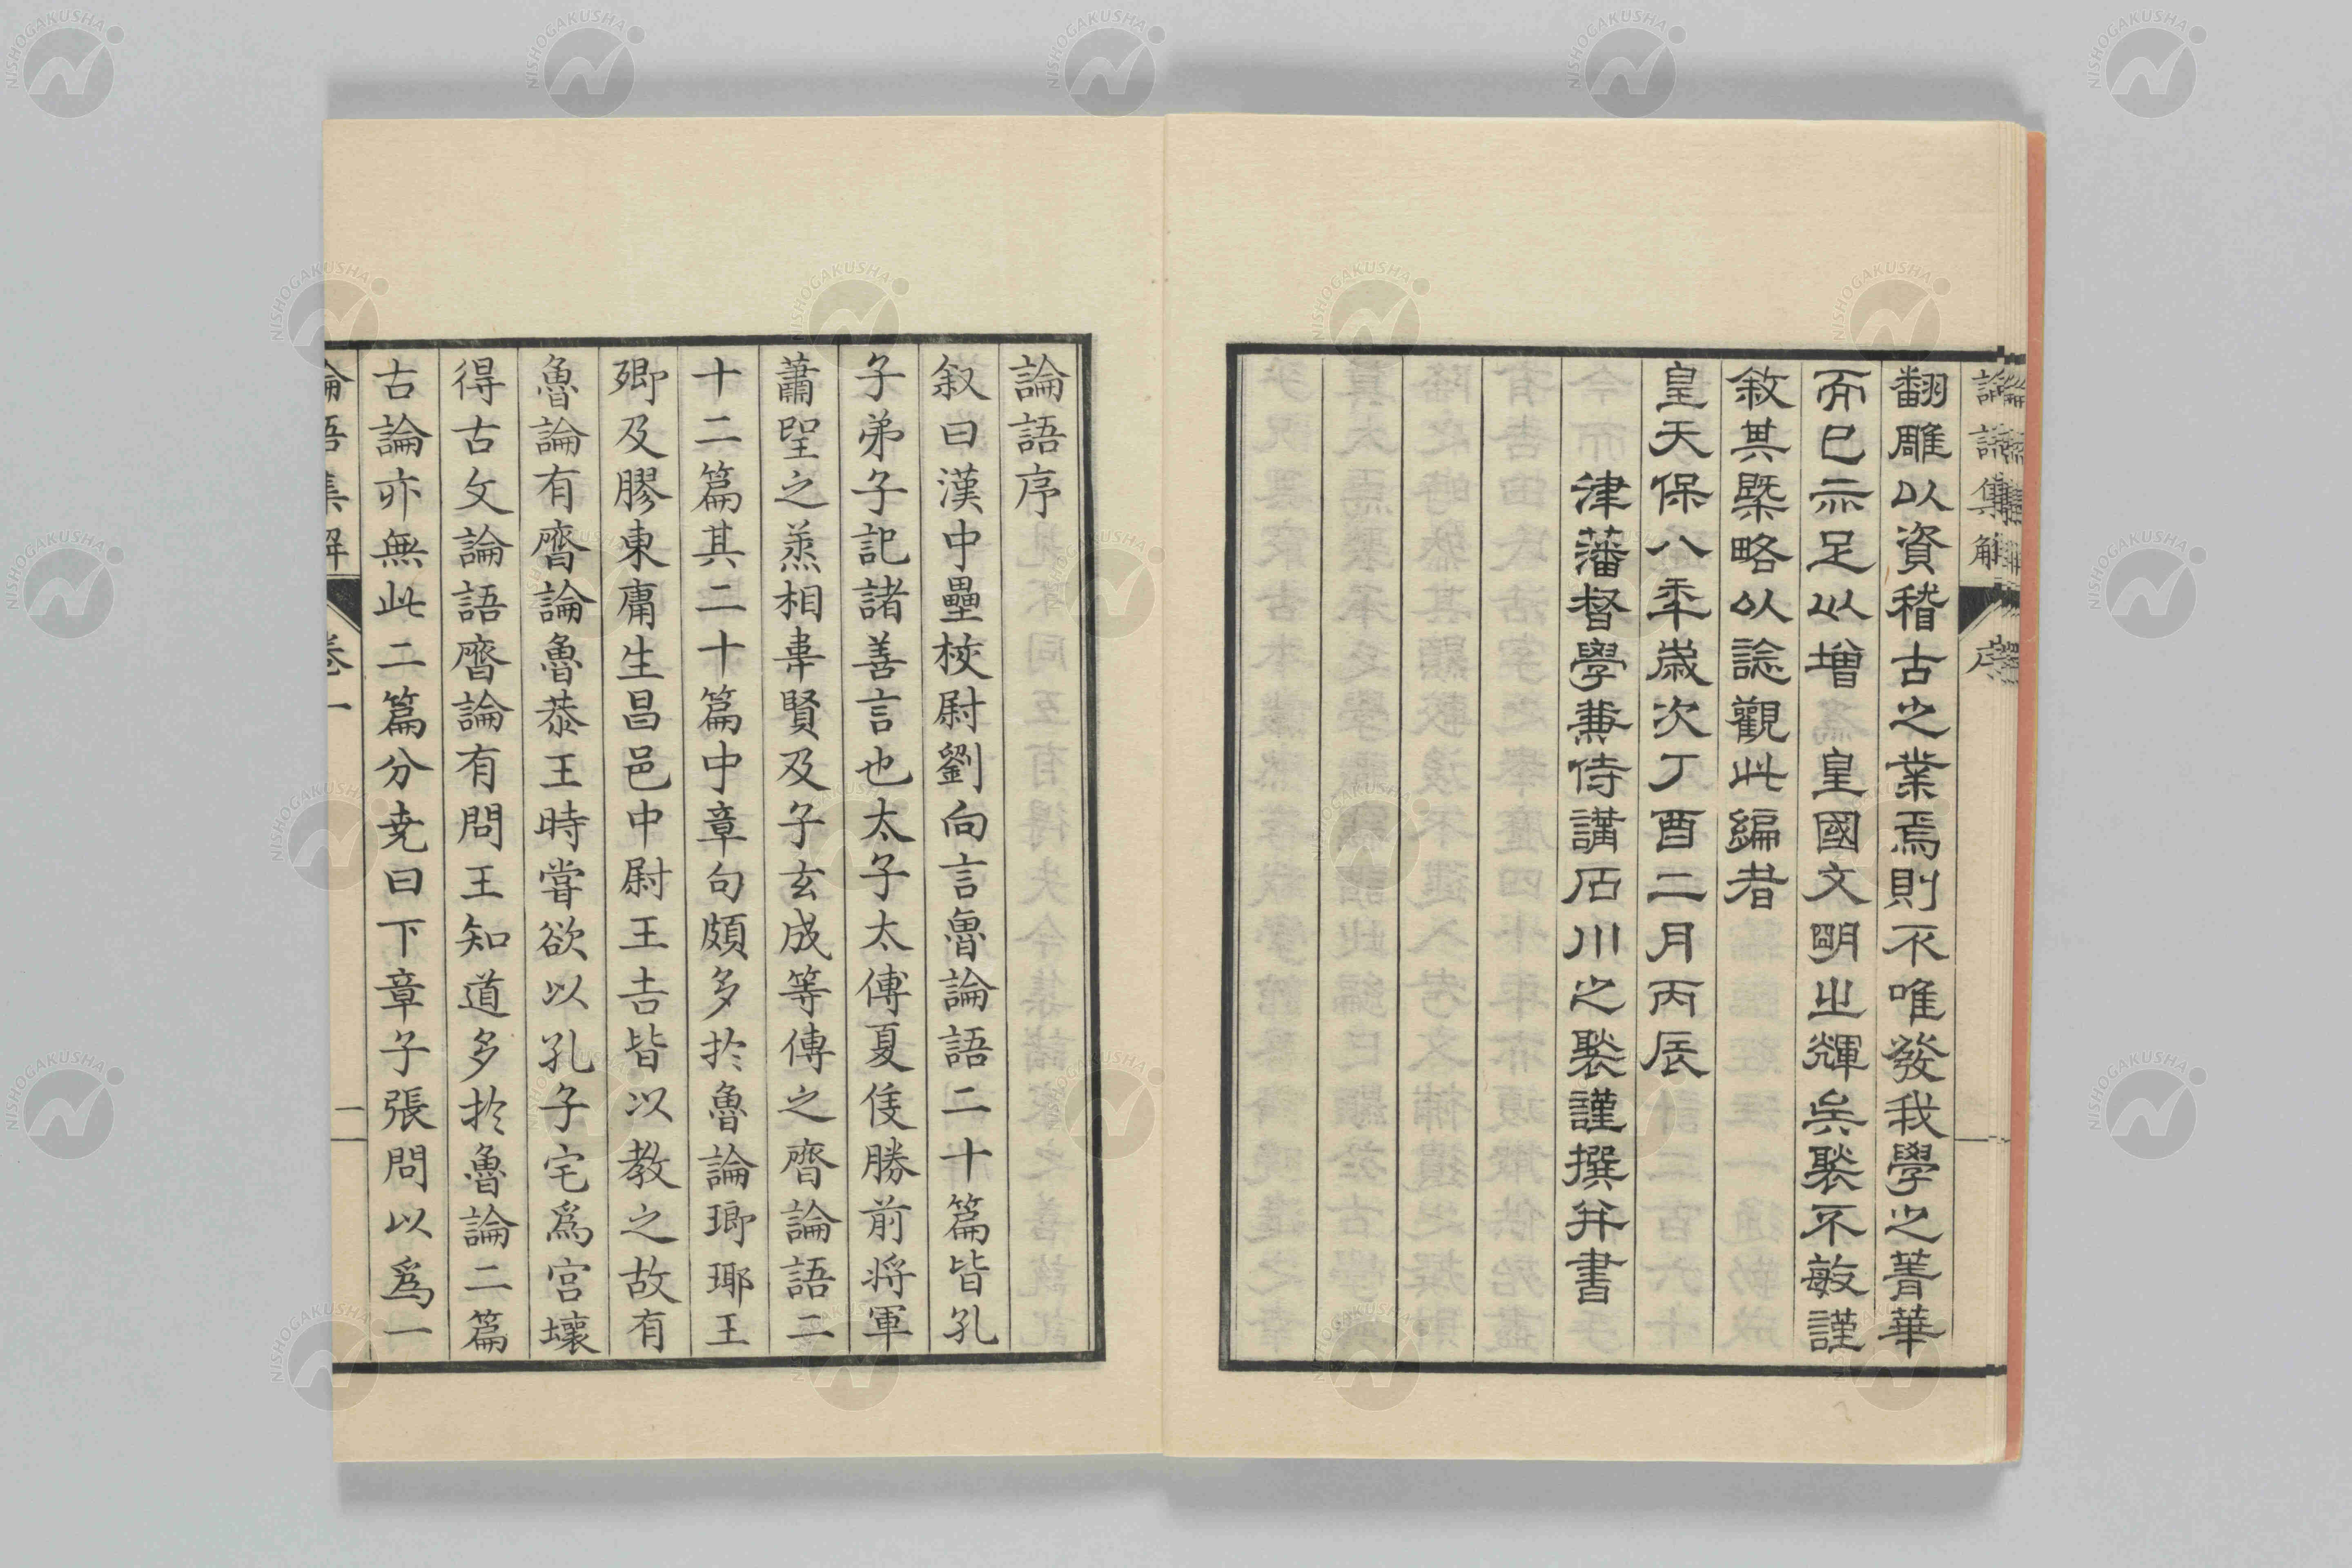 翻雕以資稽古之業焉則不唯發我學之菁華
而已亦足以增　皇國文明之輝矣褧不敏謹
敘其槩略以諗觀此編者
皇天保八年歲次丁酉二月丙辰
津藩督學兼侍講石川之褧謹撰并書
論語序
叙曰漢中壘校尉劉向言魯論語二十篇皆孔
子弟子記諸善言也太子太傅夏侯勝前將軍
蕭望之丞相韋賢及子玄成等傳之齊論語二
十二篇其二十篇中章句頗多於魯論琅琊王
卿及膠東庸生昌邑中尉王吉皆以教之故有
魯論有齊論魯恭王時嘗欲以孔子宅爲宫壞
得古文論語齊論有問王知道多於魯論二篇
古論亦無此二篇分尭曰下章子張問以爲一
論語集解　卷一　一
NISHOGAKUSHA